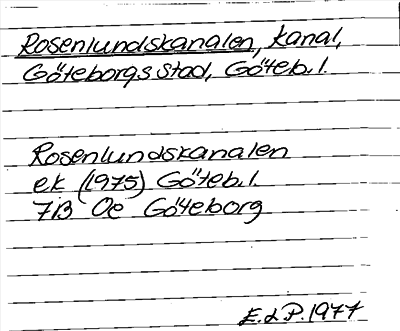 Rosenlundskanalen, kanal,
Göteborgs stad, Göteb. l.
Rosenlundskanalen
ek (1975) Göteb. l.
7B Oe Göteborg
E.d P. 1977